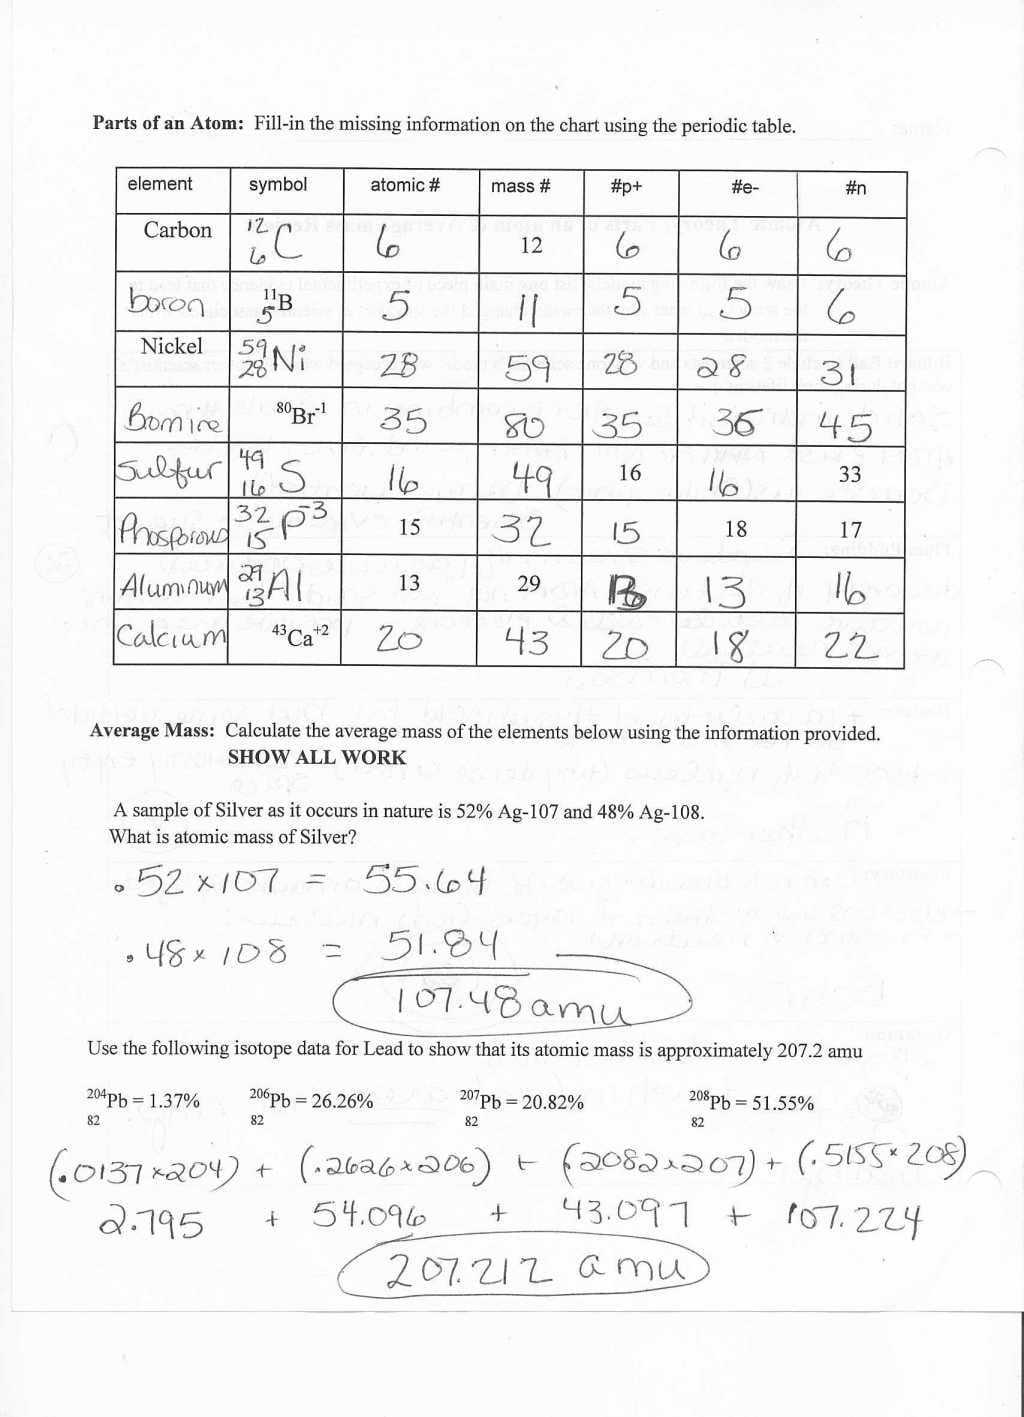 Parts of an Atom: Fill-in the missing information on the chart using the periodic table.
element symbol atomic # mass # #p+ #e- #n
Carbon 12 6 C 6 12 6 6 6
boron 11 5 B 5 11 5 5 6
Nickel 59 28 Ni 28 59 28 28 31
Bomine 80Br-1 35 80 35 36 45
Sulfur 49 16 S 16 49 16 16 33
Phosporous 32 15 P-3 15 32 15 18 17
Aluminum 29 13 Al 13 29 13 13 16
Calcium 43Ca+2 20 43 20 18 22
Average Mass: Calculate the average mass of the elements below using the information provided.
SHOW ALL WORK
A sample of Silver as it occurs in nature is 52% Ag-107 and 48% Ag-108.
What is atomic mass of Silver?
.52 x 107 = 55.64
.48 x 108 = 51.84
107.48 amu
Use the following isotope data for Lead to show that its atomic mass is approximately 207.2 amu
204Pb = 1.37% 206Pb = 26.26% 207Pb = 20.82% 208Pb = 51.55%
82 82 82 82
(.0137 x 204) + (.2626 x 206) + (.2082 x 207) + (.5155 x 208)
2.795 + 54.096 + 43.097 + 107.224
207.212 amu